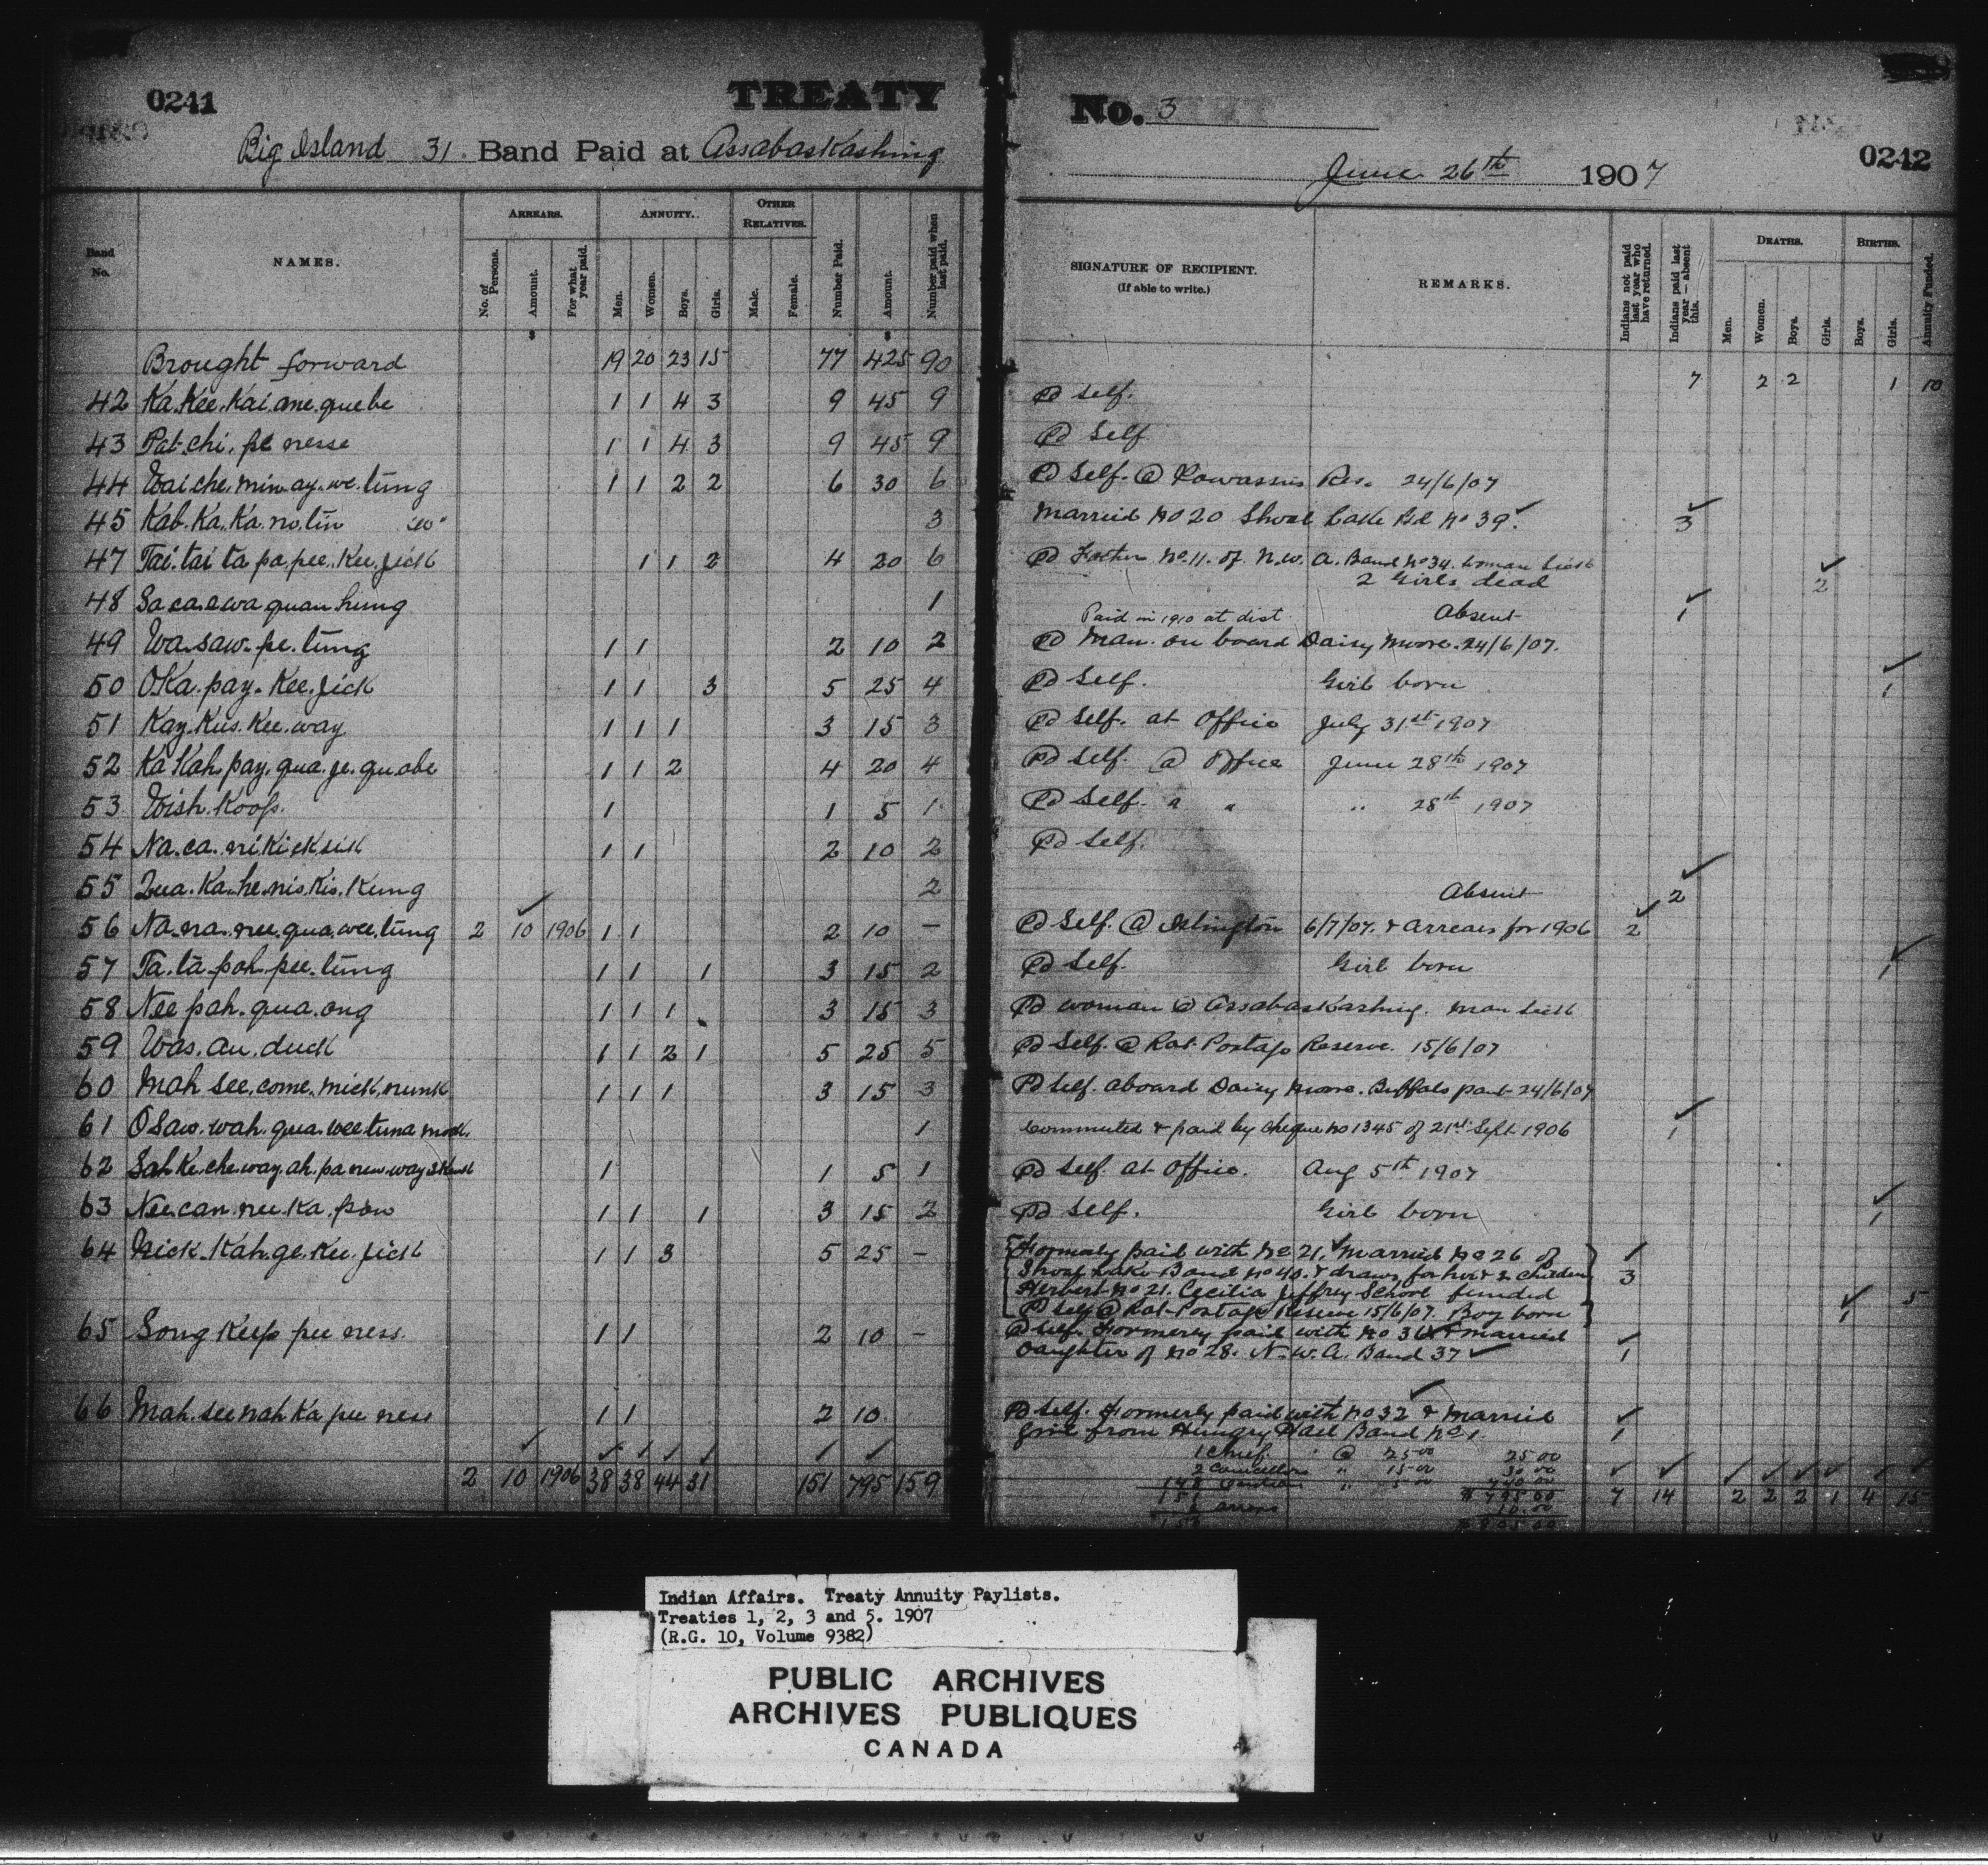 0241
TREATY
No. 3
0242
Big Island 31 Band Paid at Assabaskashing
June 26th 1907
Band No.
NAMES.
ARREARS.
No. of Persons.
Amount.
For what year paid.
ANNUITY.
Men.
Women.
Boys.
Girls.
OTHER RELATIVES.
Male.
Female.
Number Paid.
Amount.
Number paid when last paid.
SIGNATURE OF RECIPIENT.
(If able to write.)
REMARKS.
Indians not paid last year who have returned.
Indians paid last year — absent this.
DEATHS.
Men.
Women.
Boys.
Girls.
BIRTHS.
Boys.
Girls.
Annuity Funded.
Brought forward 19 20 23 15 77 425 90 7 2 2 1 10
42 Ka.Kee.Kai.ane.quebe 1 1 4 3 9 45 9 Pd Self.
43 Pat.chi.pe nesse 1 1 4 3 9 45 9 Pd Self
44 Wai che.min.ay.we.tung 1 1 2 2 6 30 6 Pd Self. @ Kowassus Res. 24/6/07
45 Kab.Ka.Ka.no.tin "W" 3 Married No 20 Shoal Lake Bd No 39. 3
47 Tai.tai ta pa.pee.Kee.jick 1 1 2 4 20 6 Pd Father No. 11. of N.W. A. Band No 34. woman sick
2 Girls dead 2
48 Sa ca.awa quan hung 1 Paid in 1910 at dist. Absent 1
49 Wa.saw.pe.tung 1 1 2 10 2 Pd Man. on board Daisy Moore. 24/6/07.
50 OKa.pay.Kee.jick 1 1 3 5 25 4 Pd Self. Girl born 1
51 Kay.Kus.Kee.way 1 1 1 3 15 3 Pd Self. at Office July 31st 1907
52 Ka Kah.pay.qua.je.quabe 1 1 2 4 20 4 Pd Self. @ Office June 28th 1907
53 Wish.Koop. 1 1 5 1 Pd Self. " " " 28th 1907
54 Na.ca.ni Kick sik 1 1 2 10 2 Pd Self.
55 Qua.Ka.he.nis.Kis.Kung 2 Absent 2
56 Na.na.nee.qua.wee.tung 2 10 1906 1 1 2 10 – Pd Self. @ Islington 6/7/07. & Arrears for 1906 2
57 Ta.ta.pah.pee.tung 1 1 1 3 15 2 Pd Self. Girl born 1
58 Nee pah.qua.ong 1 1 1 3 15 3 Pd woman @ Assabaskashing. Man sick
59 Was.au.duck 1 1 2 1 5 25 5 Pd Self. @ Rat Portage Reserve. 15/6/07
60 Mah see.come.mick.nunk 1 1 1 3 15 3 Pd Self. aboard Daisy Moore. Buffalo pt 24/6/07
61 Osaw.wah.qua.wee.tuna mook. 1 Commuted & paid by cheque no 1345 of 21st Sept 1906 1
62 Sah.Ke.che.way.ah.pa 1 1 5 1 Pd Self at Office. Aug 5th 1907
63 Nee.can.nee.Ka.pow 1 1 1 3 15 2 Pd Self. Girl born 1
64 Kick.Kah.ge.Kee.jick 1 1 3 5 25 – Formerly paid with No 21. Married No 26 of 1
Shoal Lake Band No 40. & draws for her & 2 children 3
Herbert No 21. Cecilia Jeffrey School funded 5
Pd Self @ Rat Portage Reserve 15/6/07. Boy born 1
65 Song Keep pee ness. 1 1 2 10 – Pd Self. Formerly paid with No 36 & married
Daughter of No 28. N.W.A. Band 37 1
66 Mah.see nah Ka pee ness 1 1 2 10 Pd Self. Formerly paid with No 32 & married
Girl from Hungry Hall Band No 1. 1
1 Chief @ 25 00 25 00
2 Councillors " 15 00 30 00
148 Indians " 5 00 740 00
151 $ 795 00
2 10 1906 38 38 44 31 151 795 159 7 14 2 2 2 1 4 15
arrears 10.00
Indian Affairs. Treaty Annuity Paylists.
Treaties 1, 2, 3 and 5. 1907
(R.G. 10, Volume 9382)
PUBLIC ARCHIVES
ARCHIVES PUBLIQUES
CANADA